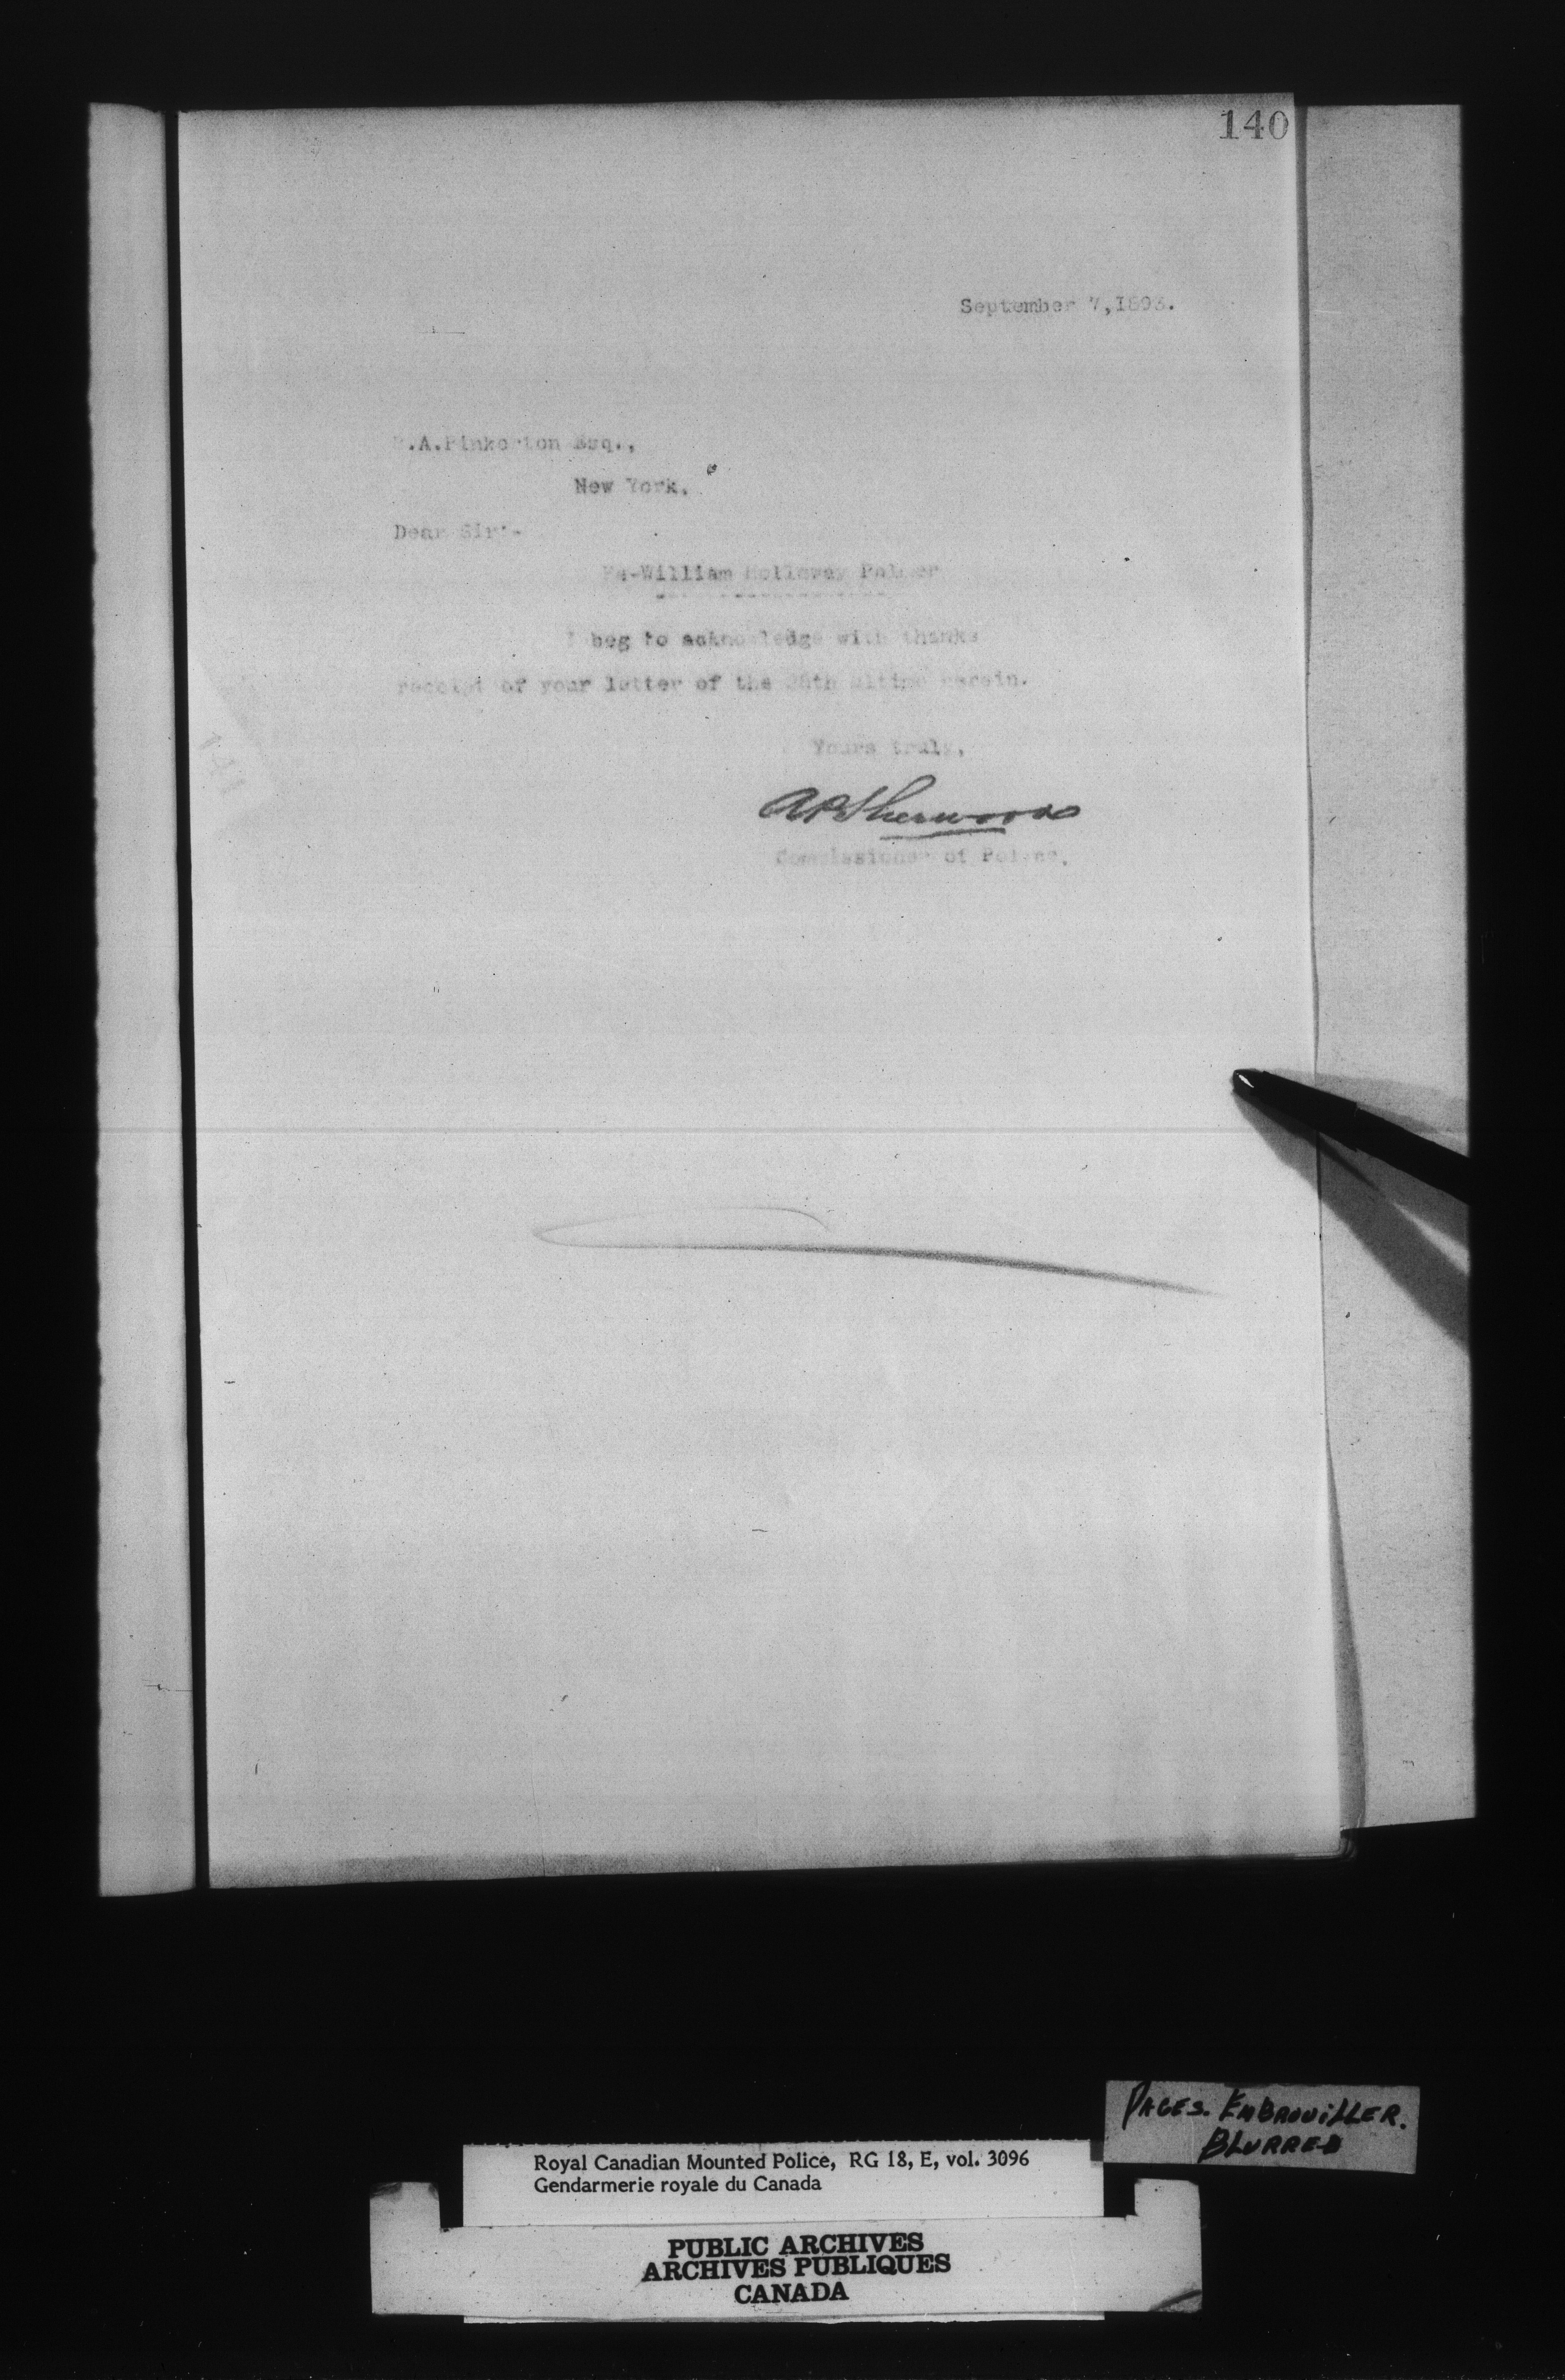 140
September 7, 1893.
.A.Pinkerton Esq.,
New York.
Dear Sir:-
Re-William Holloway Palmer
I beg to acknowledge with thanks
receipt of your letter of the ultimo herein.
Yours truly,
APSherwood
Commissioner of Police.
PAGES. EMBROUILLER.
BLURRED
Royal Canadian Mounted Police, RG 18, E, vol. 3096
Gendarmerie royale du Canada
PUBLIC ARCHIVES
ARCHIVES PUBLIQUES
CANADA